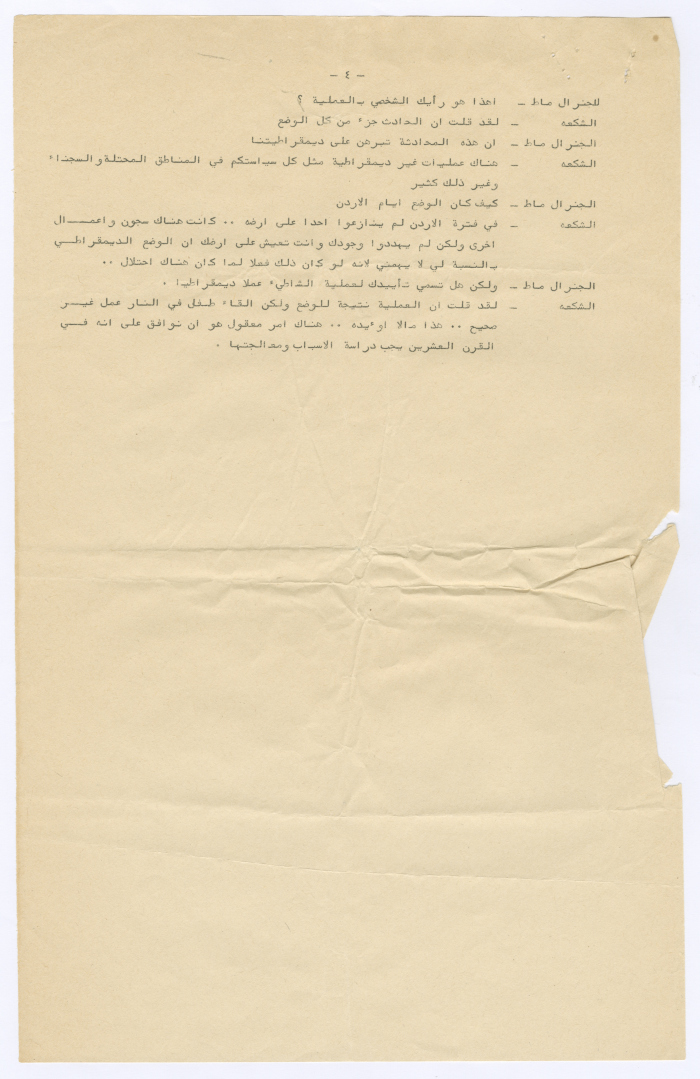 - ٤ -
للجنرال ماط - اهذا هو رأيك الشخصي بالعملية ؟
الشكعه - لقد قلت ان الحادث جزء من كل الوضع
الجنرال ماط - ان هذه المحادثة تبرهن على ديمقراطيتنا
الشكعه - هناك عمليات غير ديمقراطية مثل كل سياستكم في المناطق المحتلة والسجناء
وغير ذلك كثير
الجنرال ماط - كيف كان الوضع ايام الاردن
الشكعه - في فترة الاردن لم ينازعوا احدا على ارضه .. كانت هناك سجون واعمـــال
اخرى ولكن لم يهددوا وجودك وانت تعيش على ارضك ان الوضع الديمقراطـــي
بالنسبة لي لا يهمني لانه لو كان ذلك فعلا لما كان هناك احتلال ..
الجنرال ماط - ولكن هل تسمي تأييدك لعملية الشاطيء عملا ديمقراطيا .
الشكعه - لقد قلت ان العملية نتيجة للوضع ولكن القاء طفل في النار عمل غيـــر
صحيح .. هذا مالا اوءيده .. هناك امر معقول هو ان نوافق على انه فـــي
القرن العشرين يجب دراسة الاسباب ومعالجتها .